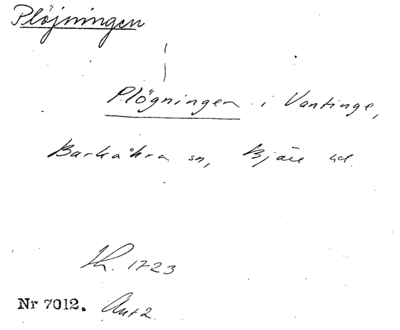 Plöjningen
Plögningen i Vantinge,
Barkåkra sn, Bjäre hd.
Lh. 1723
Nr 7012. Ant 2.